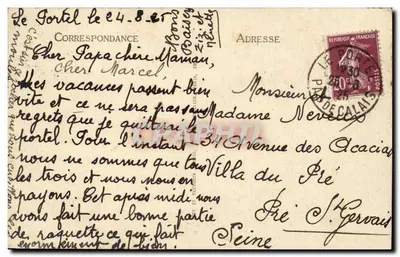 Le Portel le 24.8.25
CORRESPONDANCE
ADRESSE
Cher Papa chère Maman,
Cher Marcel
Mes vacances passent bien
vite et ce ne sera pas sans
regrets que je quitterai le
portel. Pour l'instant
nous ne sommes que tous
les trois et nous nous en
payons. Cet après midi nous
avons fait une bonne partie
de raquette ce qui fait
énormément de bien.
Bons
Baisers
Monsieur
Madame Neveu
31 Avenue des Acacias
Villa du Pré
Pré St Gervais
Seine
LE PORTEL
PAS DE CALAIS
20c